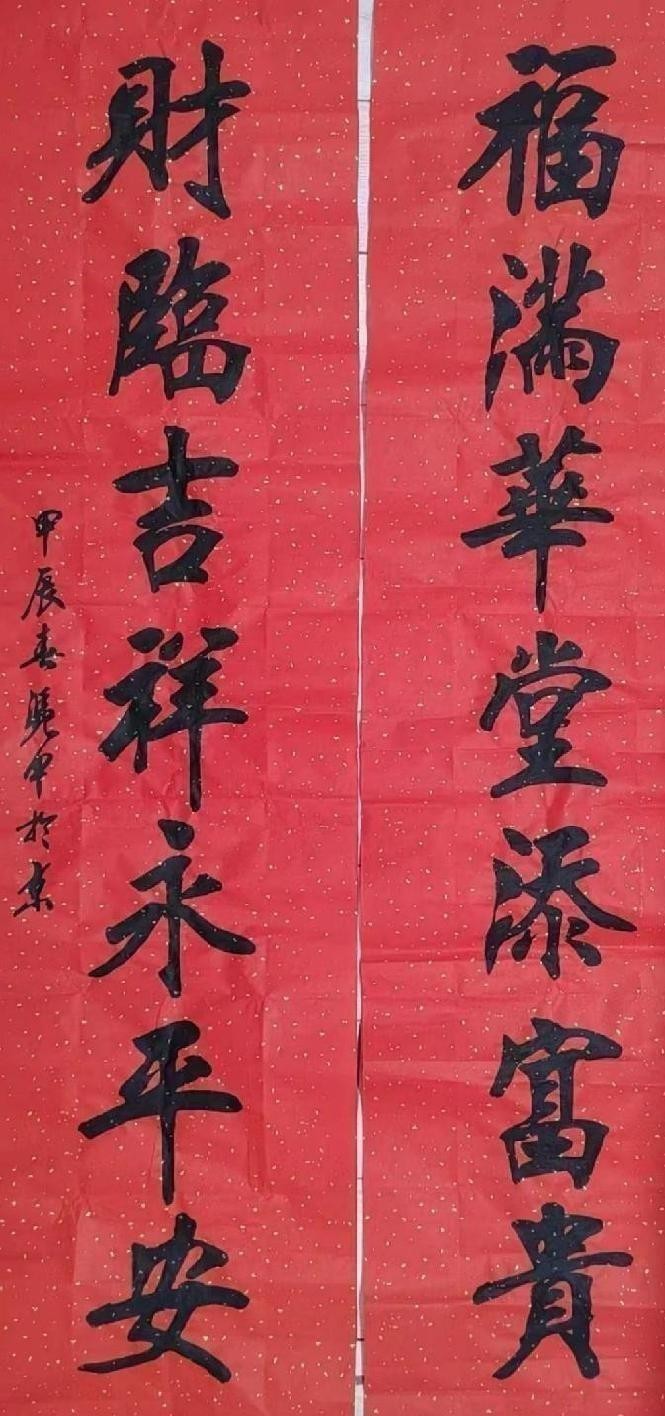 福滿華堂添富貴
財臨吉祥永平安
甲辰春曉中於京